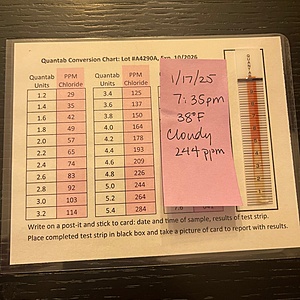 Quantab Conversion Chart: Lot #A4290A, Exp. 10/2026
Quantab Units PPM Chloride Quantab Units PPM Chloride
1.2 29 3.4 125
1.4 35 3.6 137
1.6 42 3.8 150
1.8 49 4.0 164
2.0 57 4.2 178
2.2 65 4.4 193
2.4 74 4.6 209
2.6 83 4.8 226
2.8 92 5.0 244
3.0 103 5.2 264
3.2 114 5.4 284
1/17/25
7:35pm
38°F
Cloudy
244 ppm
QUANTAB
Write on a post-it and stick to card: date and time of sample, results of test strip.
Place completed test strip in black box and take a picture of card to report with results.